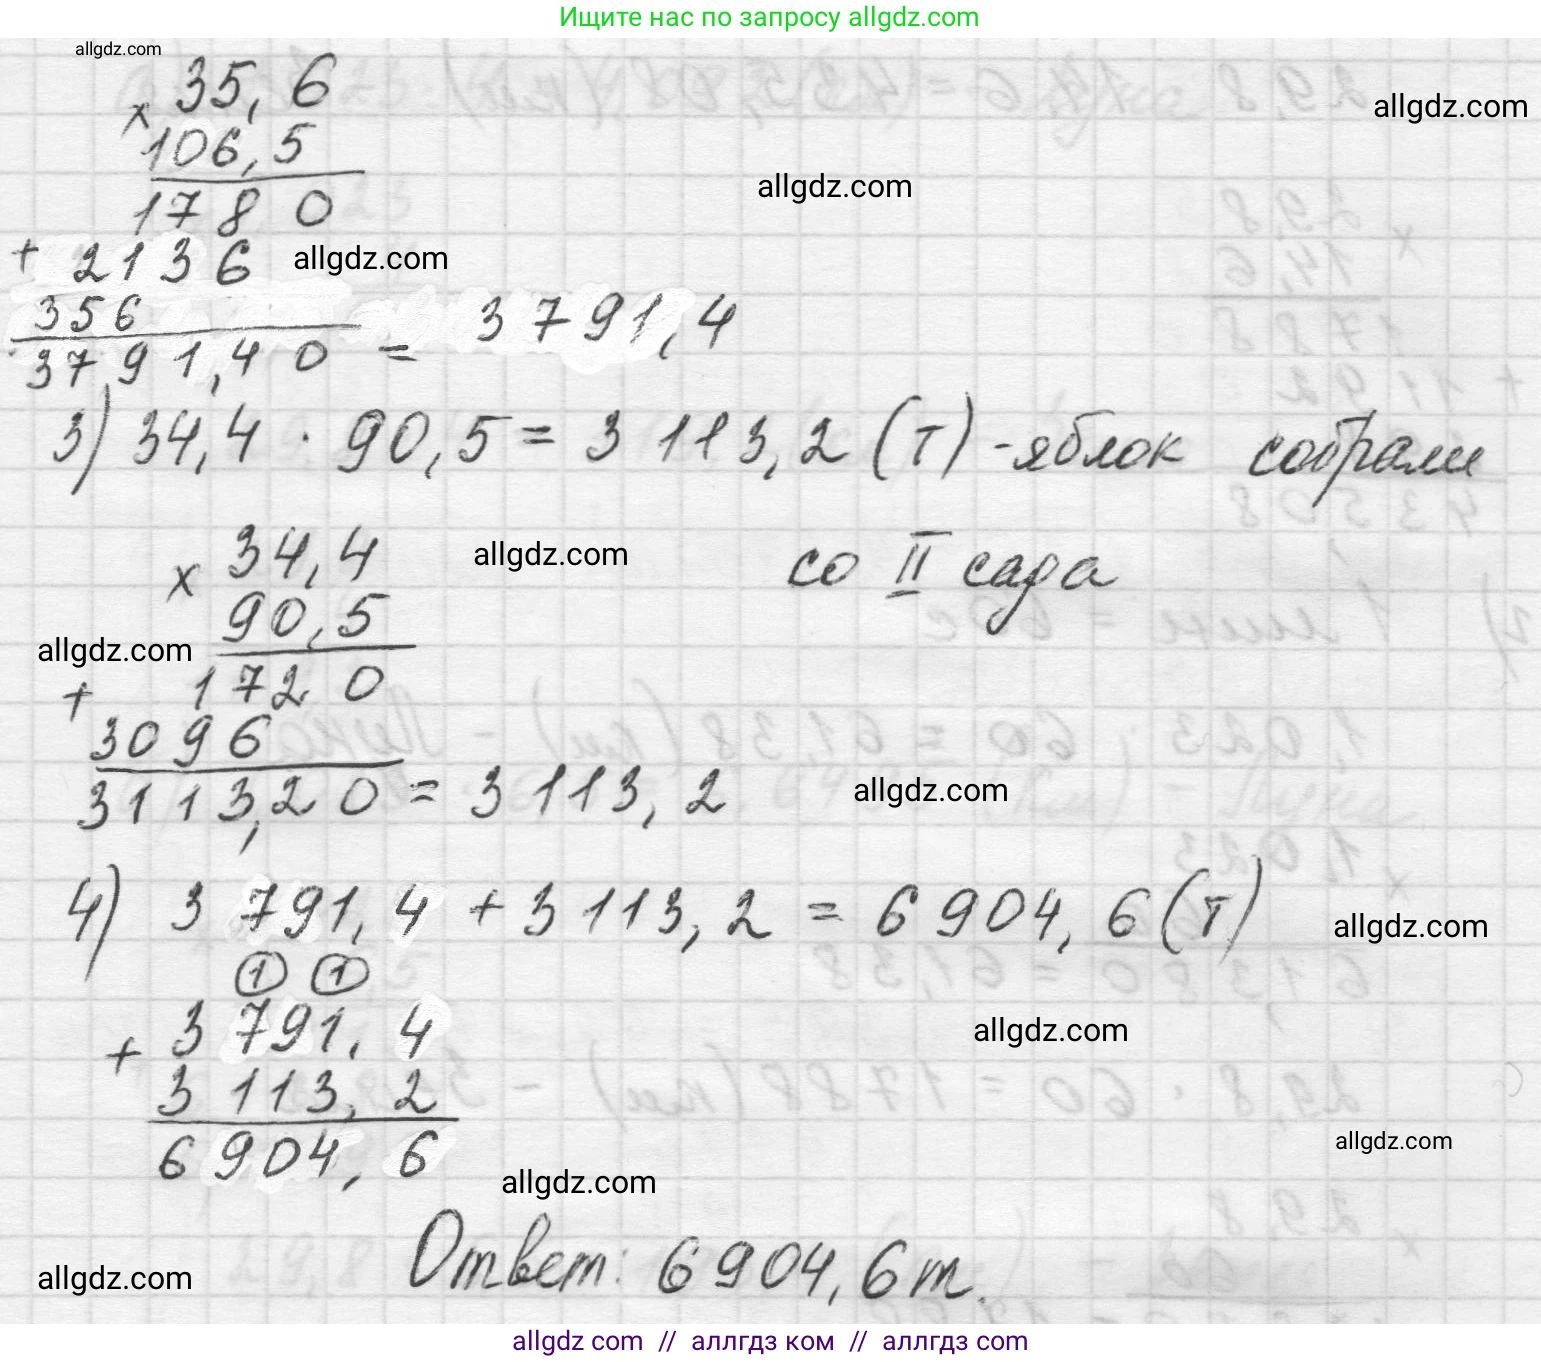 Ищите нас по запросу allgdz.com
allgdz.com
35,6
allgdz.com
× 106,5
allgdz.com
1780
+ 2136
allgdz.com
356
3791,40 = 3791,4
3) 34,4 · 90,5 = 3 113,2 (т) - яблок собрали
со II сада
34,4
allgdz.com
× 90,5
allgdz.com
1720
+ 3096
3113,20 = 3 113,2
allgdz.com
4) 3 791,4 + 3 113,2 = 6 904,6 (т)
allgdz.com
1 1
3 791,4
allgdz.com
+ 3 113,2
6 904,6
allgdz.com
allgdz.com
Ответ: 6 904,6 т.
allgdz.com
allgdz com // аллгдз ком // аллгдз.com